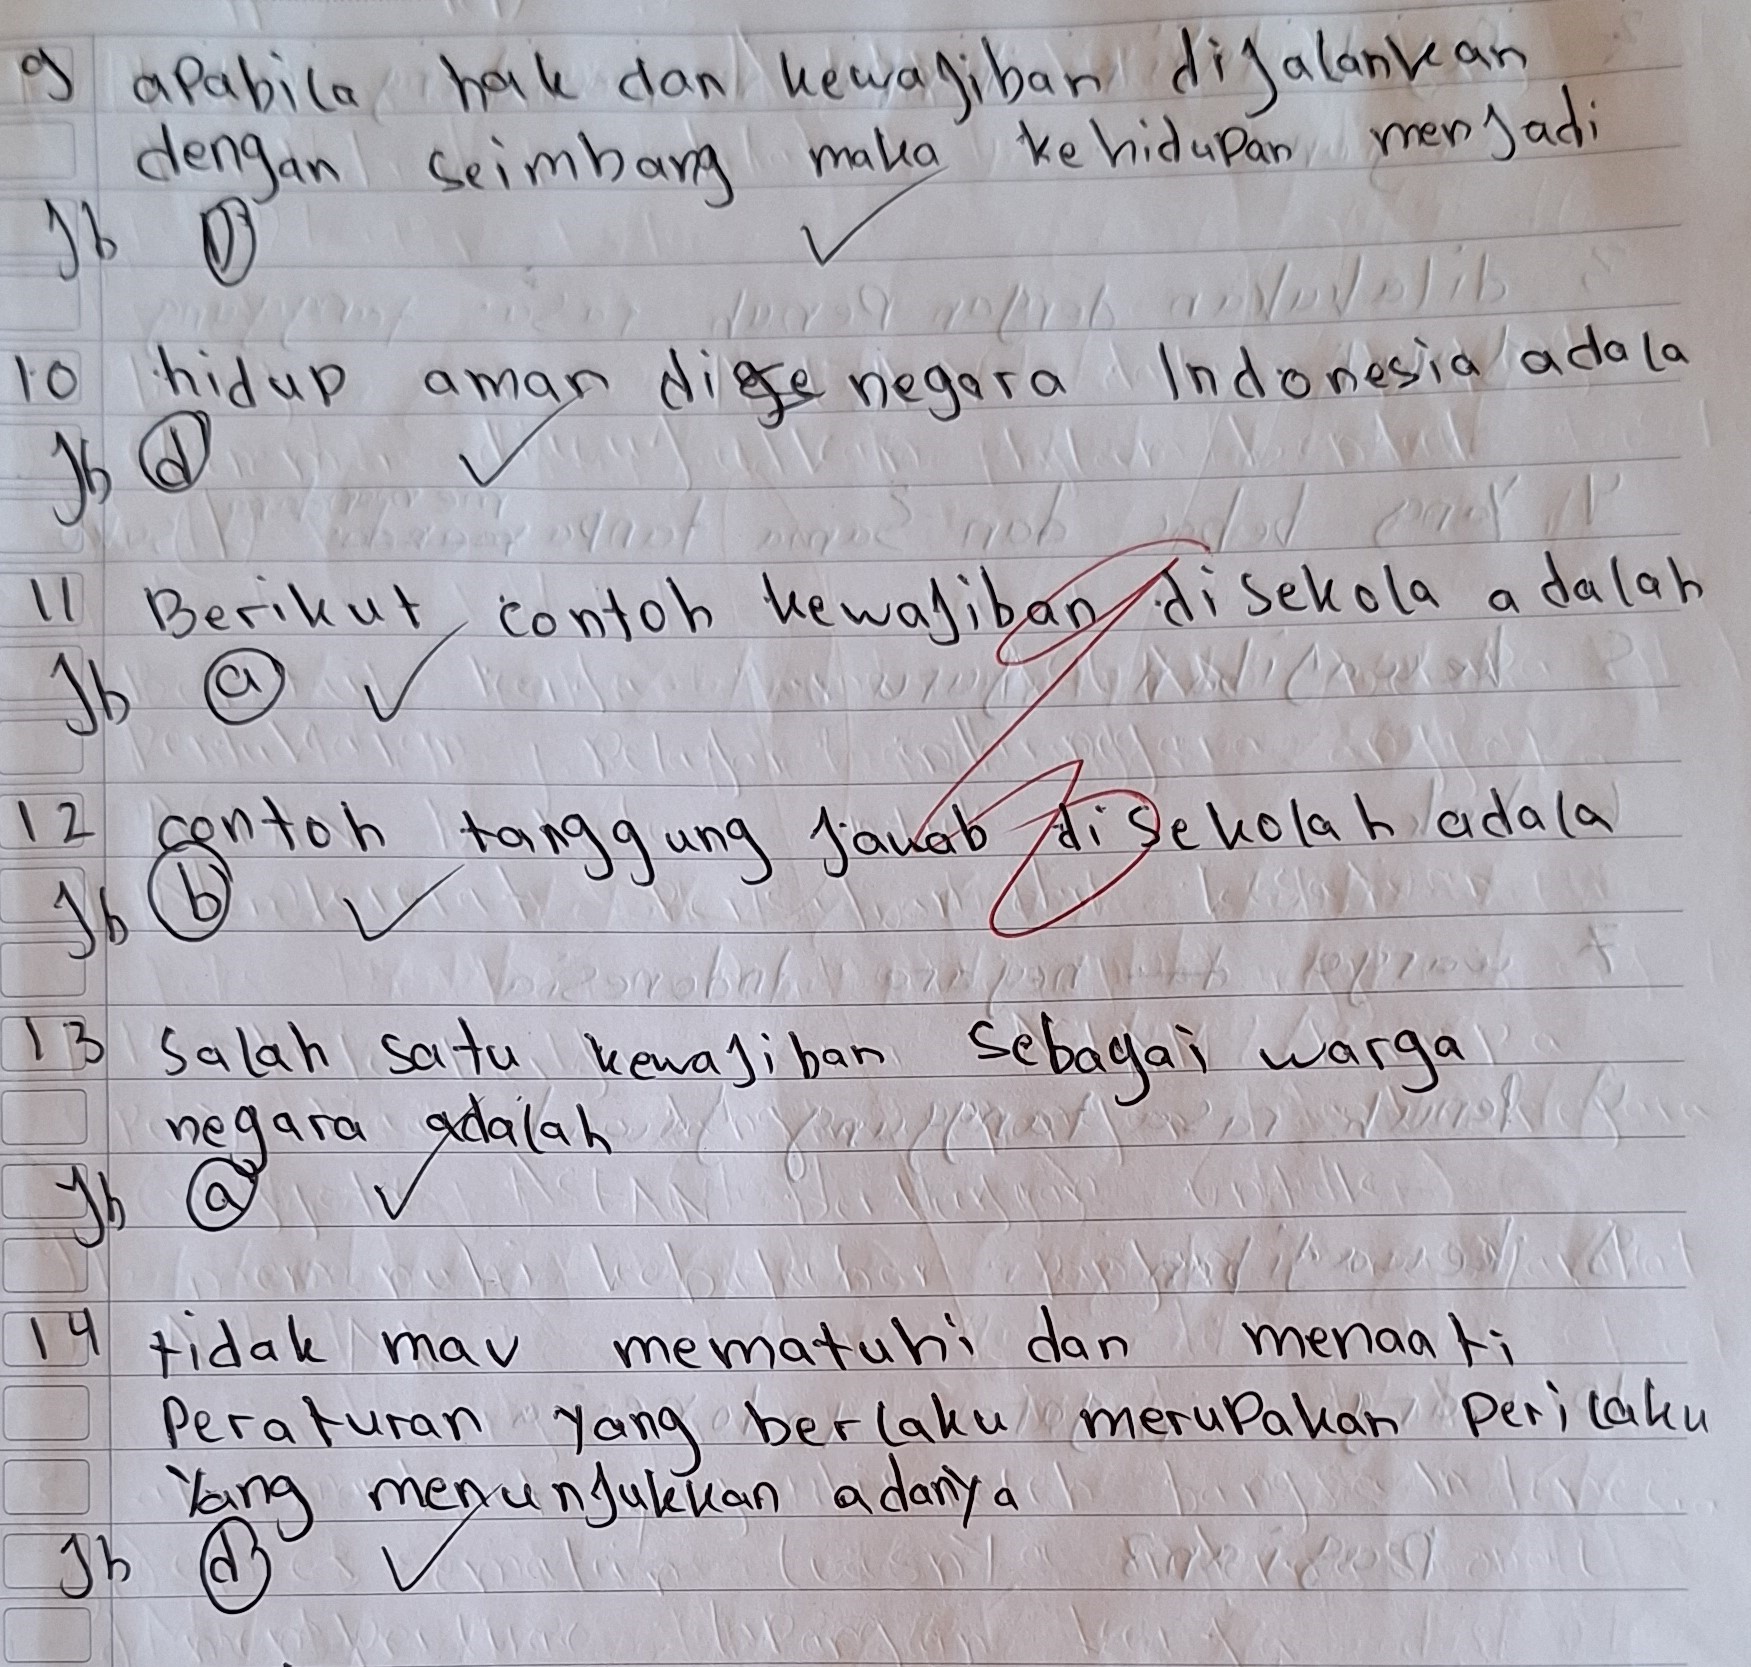 9 aPabila hak dan kewajiban dijalankan
dengan seimbang maka kehidupan menjadi
Jb D
10 hidup aman di negara Indonesia adala
Jb d
11 Berikut contoh kewajiban disekola adalah
Jb a
12 contoh tanggung jawab disekolah adala
Jb b
13 Salah satu kewajiban sebagai warga
negara adalah
Jb a
14 tidak mau mematuhi dan menaati
Peraturan yang berlaku merupakan Perilaku
Yang menunjukkan adanya
Jb d